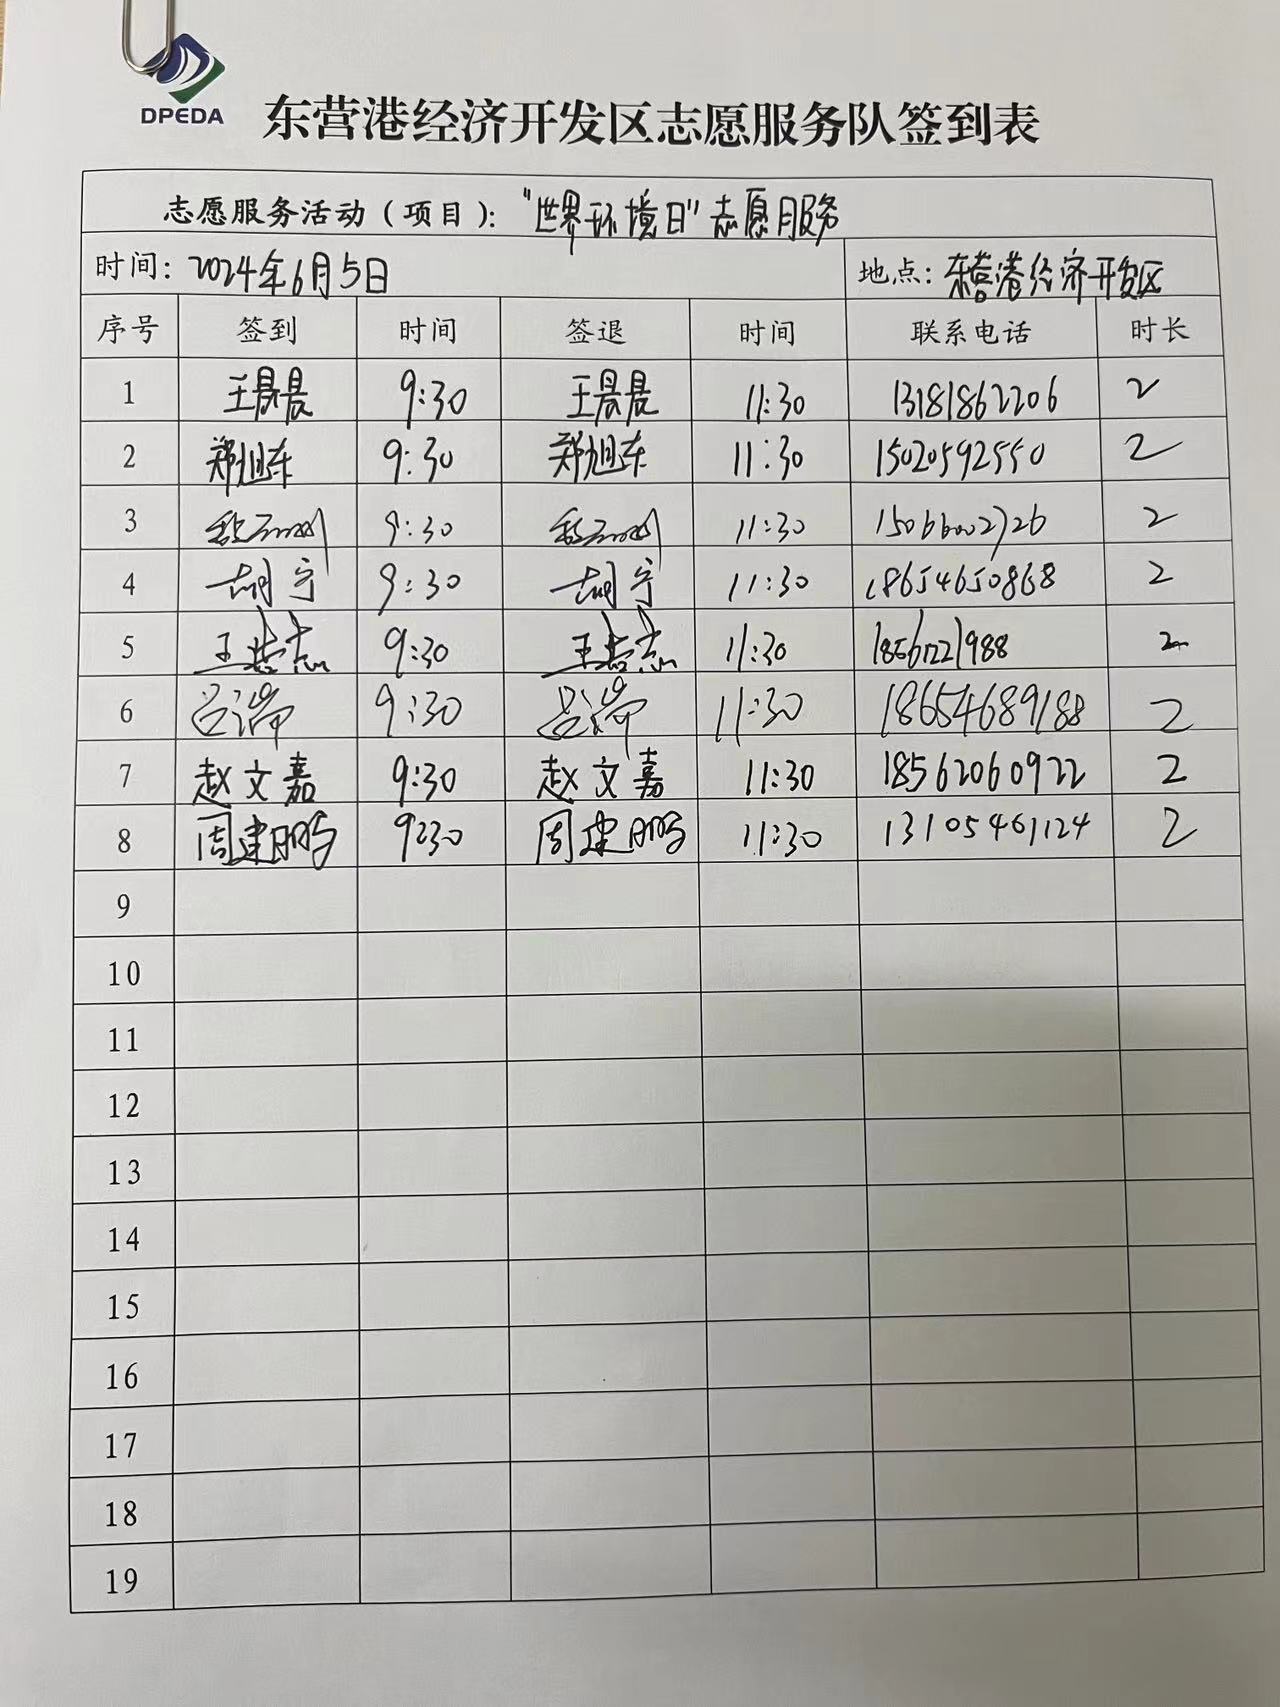 DPEDA
东营港经济开发区志愿服务队签到表
志愿服务活动（项目）：“世界环境日”志愿服务
时间：2024年6月5日 地点：东营港经济开发区
序号 签到 时间 签退 时间 联系电话 时长
1 王晨晨 9:30 王晨晨 11:30 13181862206 2
2 郑旭东 9:30 郑旭东 11:30 15020592550 2
3 9:30 11:30 15066002726 2
4 胡宁 9:30 胡宁 11:30 18654650868 2
5 9:30 11:30 18561221988 2
6 吕瑞 9:30 吕瑞 11:30 18654689188 2
7 赵文嘉 9:30 赵文嘉 11:30 18562060922 2
8 周建鹏 9:30 周建鹏 11:30 13105461124 2
9
10
11
12
13
14
15
16
17
18
19